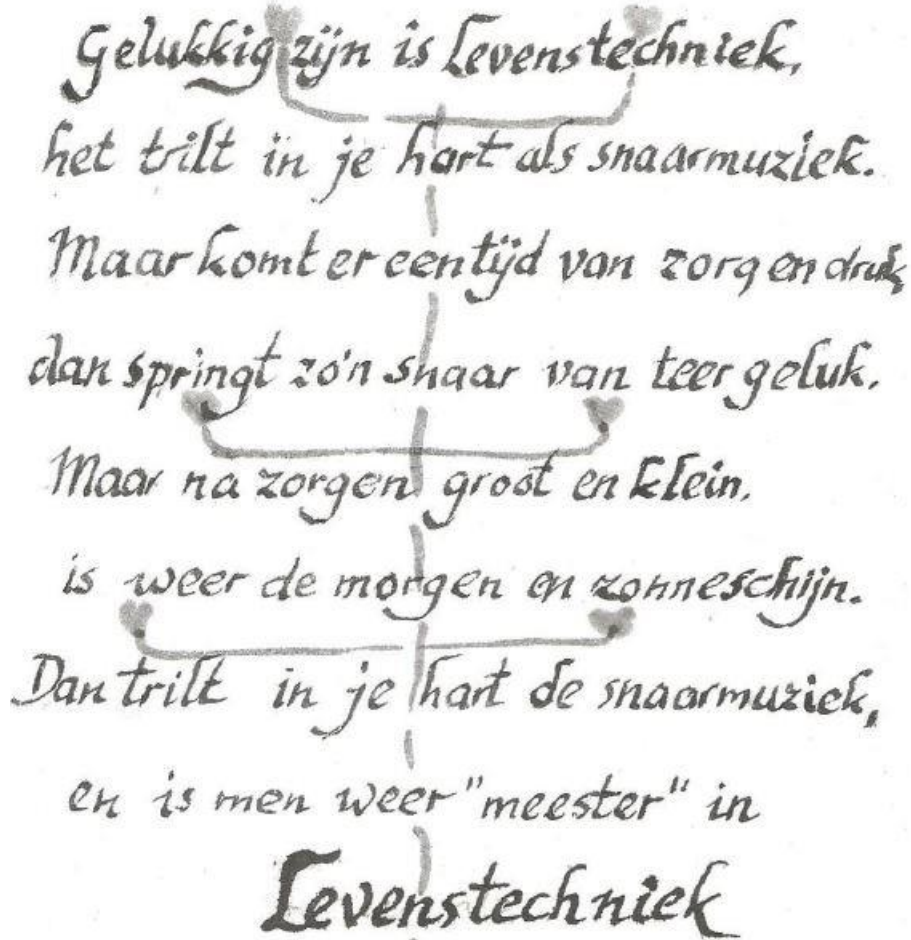 Gelukkig zijn is Levenstechniek,
het trilt in je hart als snaarmuziek.
Maar komt er een tijd van zorg en druk
dan springt zo'n snaar van teer geluk.
Maar na zorgen groot en klein.
is weer de morgen en zonneschijn.
Dan trilt in je hart de snaarmuziek,
en is men weer "meester" in
Levenstechniek